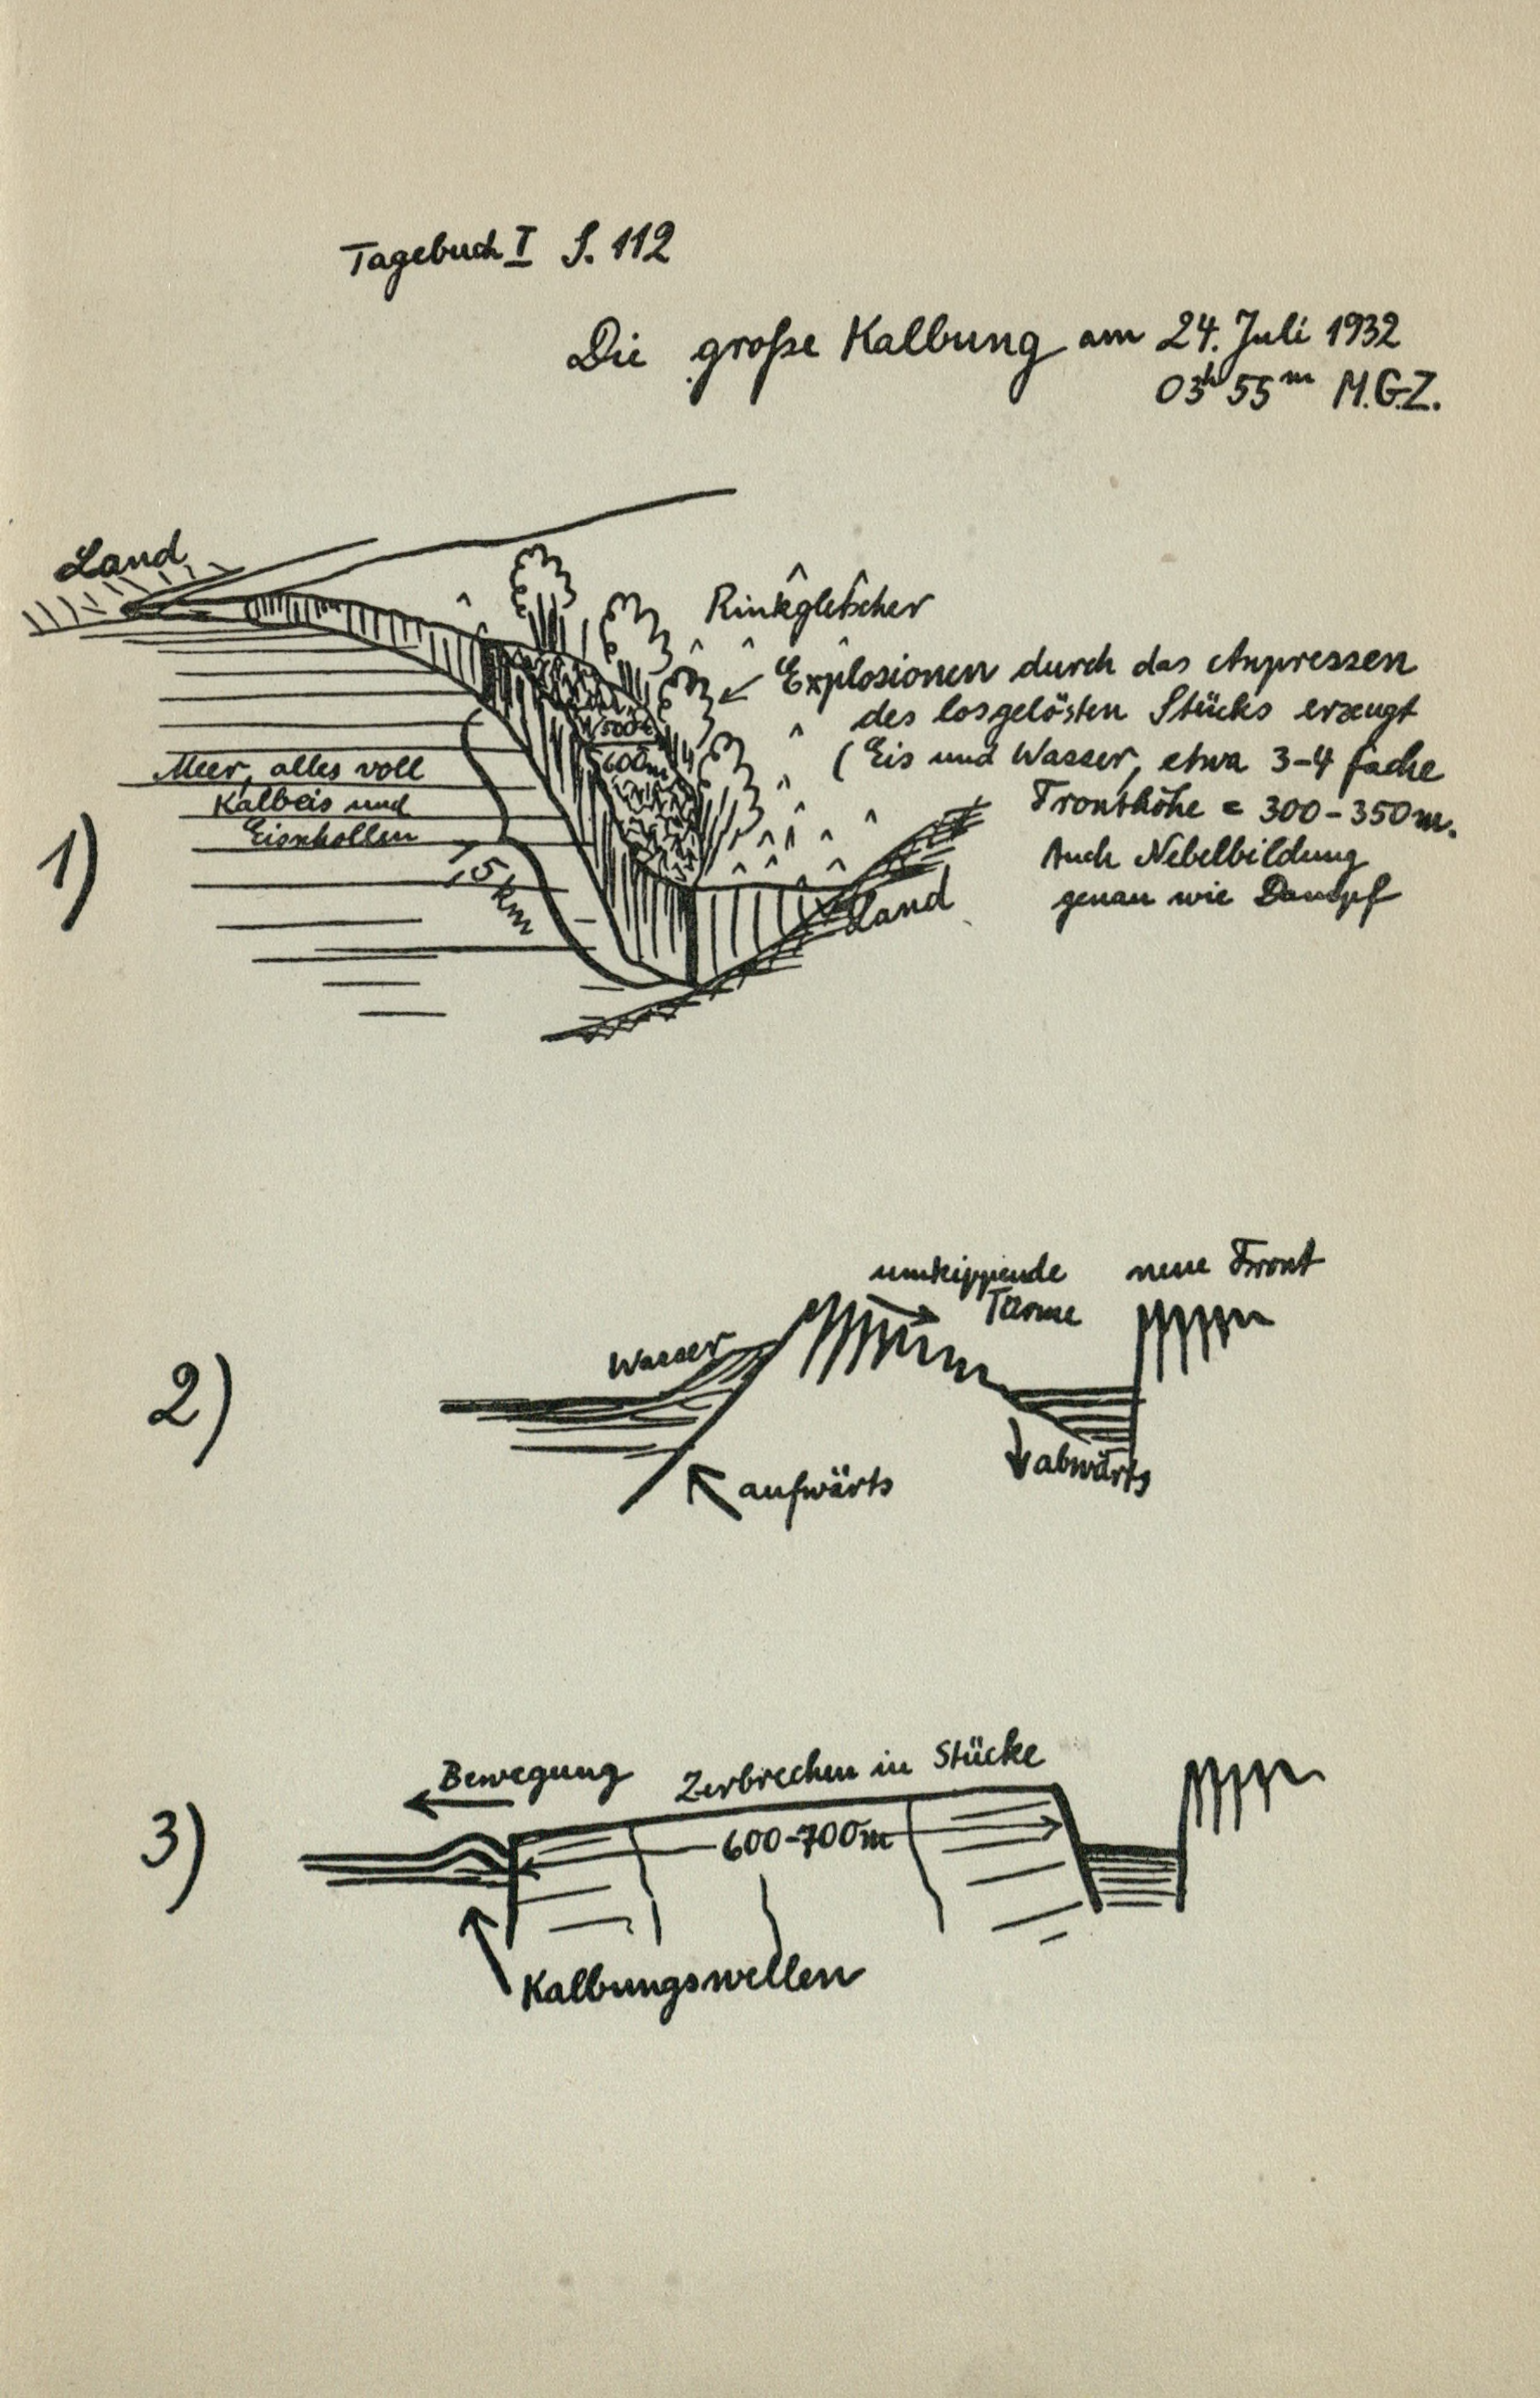 Tagebuch I S. 112
Die große Kalbung am 24. Juli 1932
03h 55m M.G.Z.
1)
Land
Rinkgletscher
Explosionen durch das Anpressen
des losgelösten Stücks erzeugt
(Eis und Wasser, etwa 3-4 fache
Fronthöhe = 300-350m.
Auch Nebelbildung
genau wie Dampf
600m
Meer, alles voll
Kalbeis und
Eisschollen
Land
2)
umkippende
Türme
neue Front
Wasser
aufwärts
abwärts
3)
Bewegung
Zerbrechen in Stücke
600-700m
Kalbungswellen